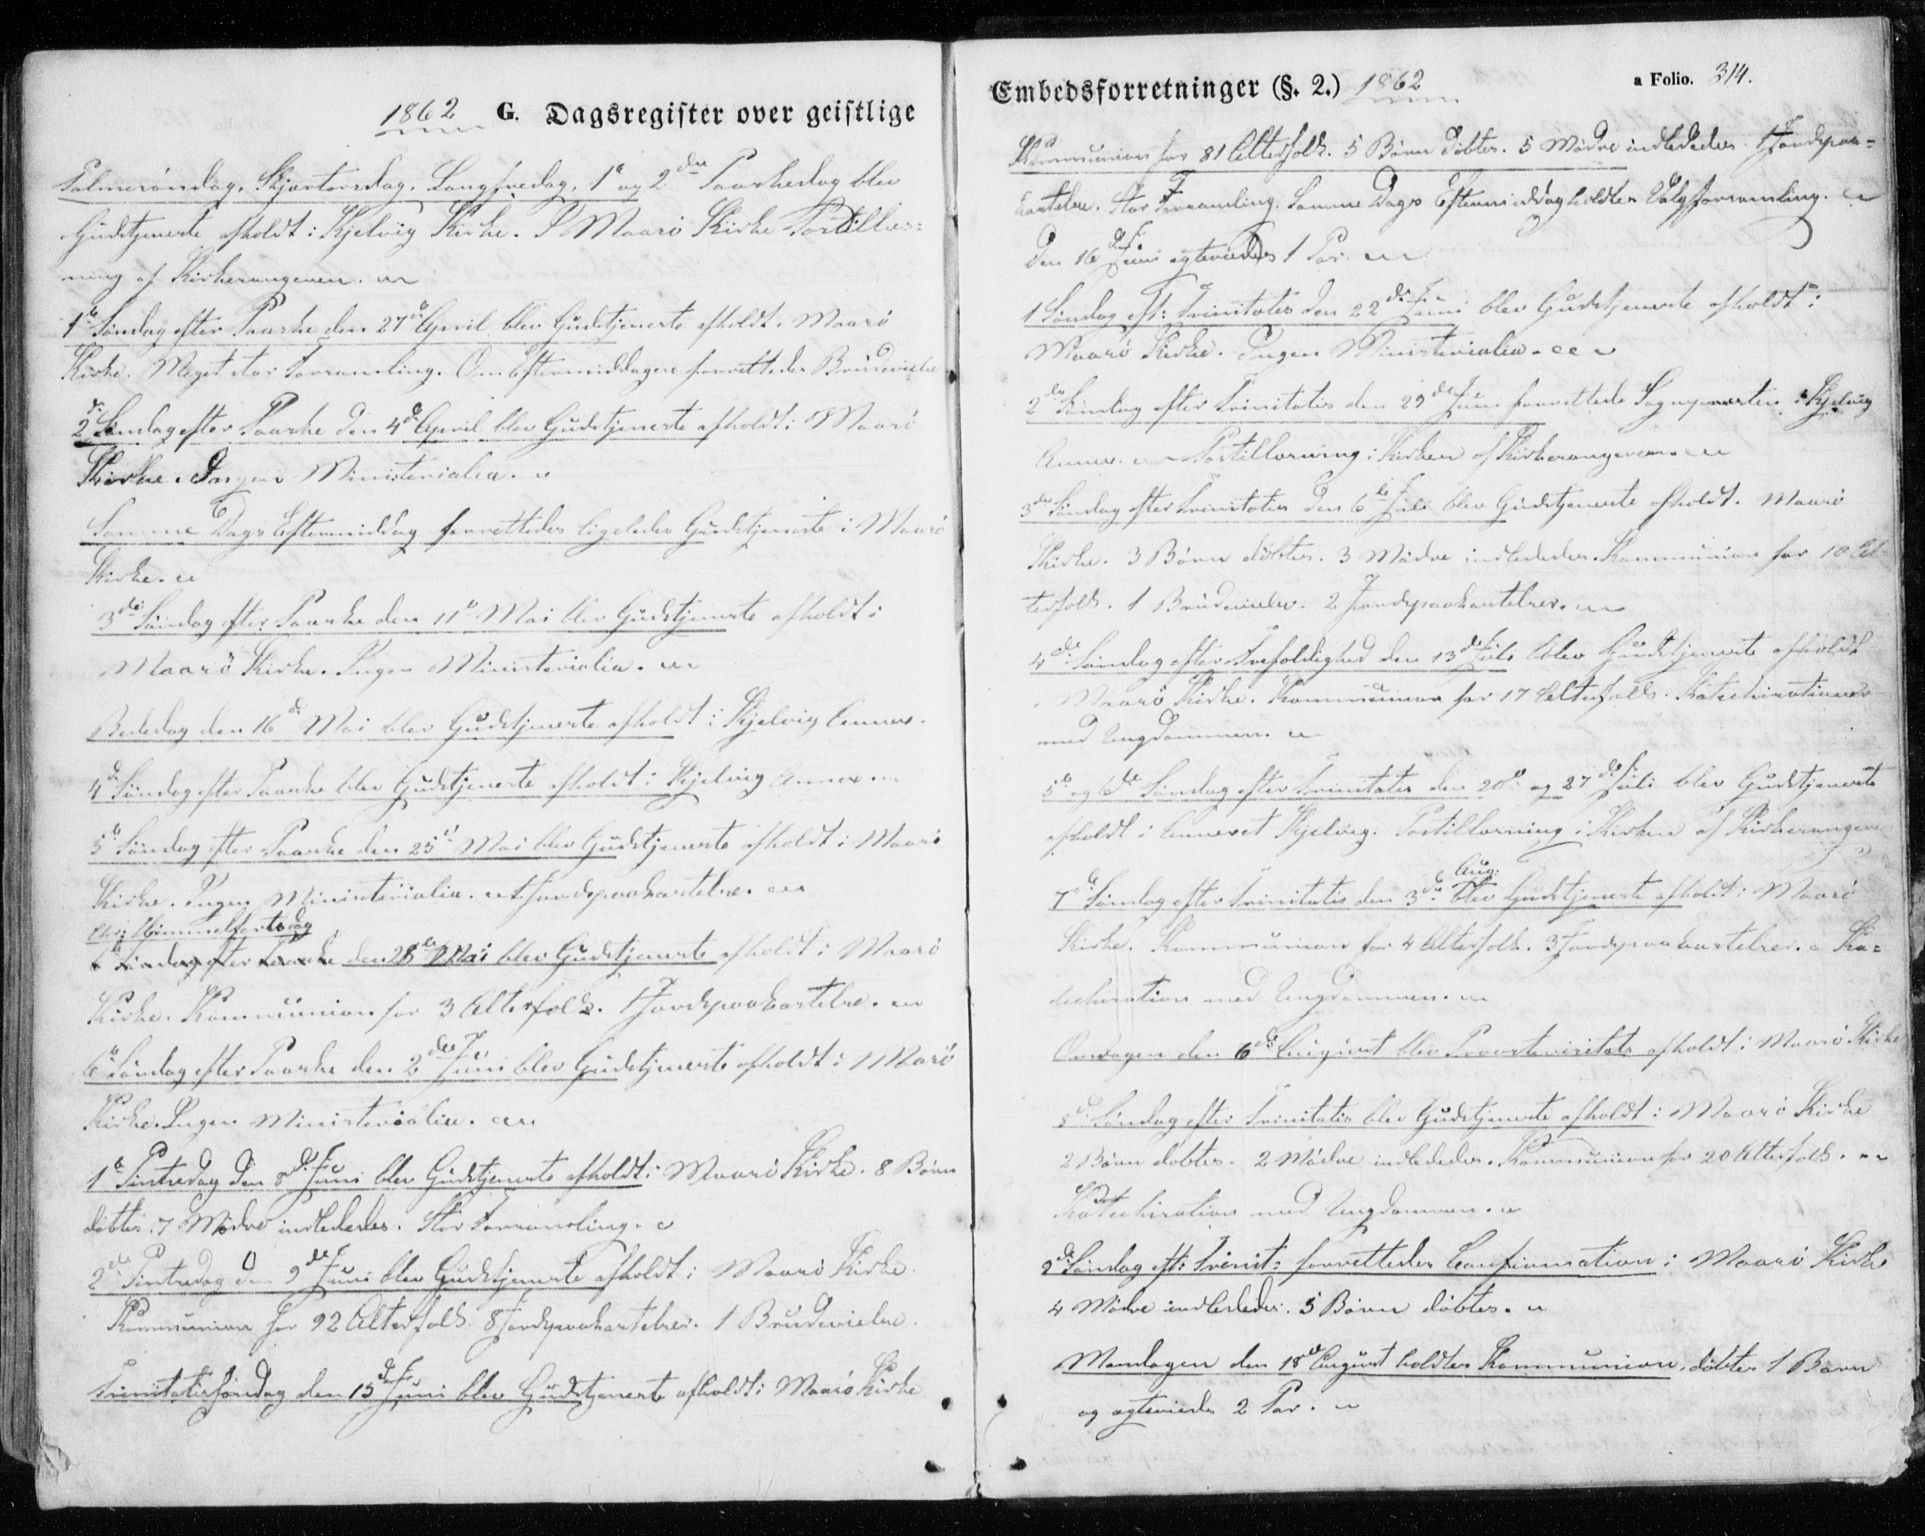 1862 G. Dagsregister over geistlige
Palmesøndag, Skjærtorsdag, Langfredag, 1e og 2den Paaskedag blev
Gudstjeneste afholdt i Kjelvig Kirke. I Maasø Kirke Postillæs=
ning af Kirkesangeren.
1ste Søndag efter Paaske den 27de April blev Gudstjeneste afholdt i Maasø
Kirke. Meget stor Forsamling. Om Eftermiddagen forrettedes Brudevielse
2de Søndag efter Paaske den 4de April blev Gudstjeneste afholdt i Maasø
Kirke. Ingen Ministerialia.
Samme Dags Eftermiddag forrettedes ligeledes Gudstjeneste i Maasø
Kirke.
3die Søndag efter Paaske den 11te Mai blev Gudstjeneste afholdt i
Maasö Kirke. Ingen Ministerialia.
Bededag den 16de Mai blev Gudstjeneste afholdt i Kjelvig Annex.
4de Søndag efter Paaske blev Gudstjeneste afholdt i Kjelvig Annex
5te Søndag efter Paaske den 25de Mai blev Gudstjeneste afholdt i Maasø
Kirke. Ingen Ministerialia. 1 Jordspaakastelse.
Chr: Himmelfartsdag
6te Søndag efter Paaske den 28de Mai blev Gudstjeneste afholdt i Maasø
Kirke. Kommunion for 3 Altersfolk. 1 Jordspaakastelse.
6te Søndag efter Paaske den 2den Juni blev Gudstjeneste afholdt i Maasö
Kirke. Ingen Ministerialia.
1e Pintsedag den 8de Juni blev Gudstjeneste afholdt i Maasø Kirke. 8 Børn
døbtes. 7 Mødre indlededes. Stor Forsamling.
2den Pintsedag den 9de Juni blev Gudstjeneste afholdt i Maasø Kirke.
Kommunion for 92 Altersfolk. 8 Jordspaakastelser. 1 Brudevielse.
Trinitatissøndag den 15de Juni blev Gudstjeneste afholdt i Maasø Kirke
Embedsforretninger (§. 2.) 1862 a Folio. 314.
Kommunion for 81 Altersfolk. 5 Børn døbtes. 5 Mødre indlededes. 1 Jordspaa=
kastelse. Stor Forsamling. Samme Dags Eftermiddag holdtes Valgforsamling.
Den 16de Juni egteviedes 1 Par.
1 Søndag eft: Trinitatis den 22de Juni blev Gudstjeneste afholdt i
Maasø Kirke. Ingen Ministerialia.
2den Søndag efter Trinitatis den 29de Juni forrettede Sognepresten i Kjelvig
Annex. Postillæsning i Kirken af Kirkesangeren.
3die Søndag efter Trinitatis den 6te Juli blev Gudstjeneste afholdt. Maasø
Kirke. 3 Børn døbtes. 3 Mødre indlededes. Kommunion for 10 Al=
tersfolk. 1 Brudevielse. 2 Jordspaakastelser.
4de Søndag efter Trefoldighed den 13de Juli blev Gudstjeneste afholdt
Maasø Kirke. Kommunion for 17 Altersfolk. Katechisation
med Ungdommen.
5te og 6te Søndag efter Trinitatis den 20de og 27de Juli blev Gudstjeneste
afholdt i Annexet Kjelvig. Postillæsning i Kirken af Kirkesangere
Aug:
7de Søndag efter Trinitatis den 3die blev Gudstjeneste afholdt i Maasø
Kirke. Kommunion for 4 Altersfolk. 3 Jordspaakastelser. Ka=
techisation med Ungdommen.
Onsdagen den 6te August blev Provstevisitats afholdt i Maasø Kirke
8de Søndag efter Trinitatis blev Gudstjeneste afholdt i Maasø Kirke
2 Børn døbtes. 2 Mødre indlededes. Kommunion for 20 Altersfolk.
Katechisation med Ungdommen.
9de Søndag eft: Trinit: forrettedes Confirmation i Maasø Kirke
4 Mødre indlededes. 5 Børn døbtes.
Mandagen den 18de August holdtes Kommunion, døbtes 1 Barn
og egteviedes 2 Par.